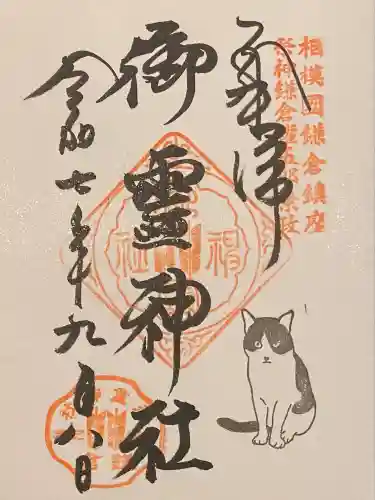 相模国鎌倉鎮座
祭神鎌倉権五郎景政
奉拝
御霊神社
令和七年九月八日